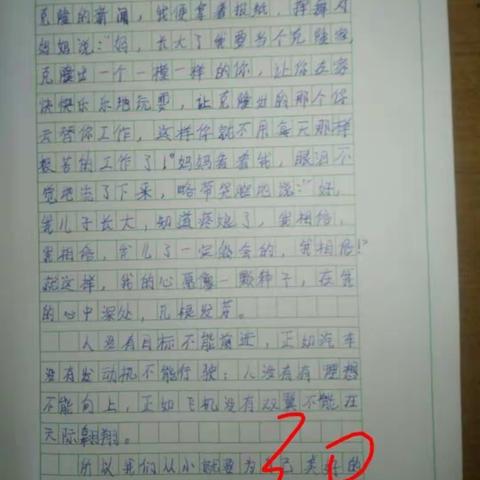 克隆的新闻，我便拿着报纸，挥舞对
妈妈说："妈，长大了我要当个克隆家，
克隆出一个一模一样的你，让你在家
快快乐乐地玩耍，让克隆出的那个你
去替你工作，这样你就不用每天那样
艰苦的工作了！"妈妈看着我，眼泪不
觉地流了下来，略带哭腔地说："好，
我儿子长大，知道疼妈了，我相信，
我相信，我儿子一定能会的，我相信！"
就这样，我的心愿像一颗种子，在我
的心中深处，扎根发芽。
人没有目标不能前进，正如汽车
没有发动机不能行驶；人没有有理想
不能向上，正如飞机没有双翼不能在
天际翱翔。
所以我们从小就要为自己美好的